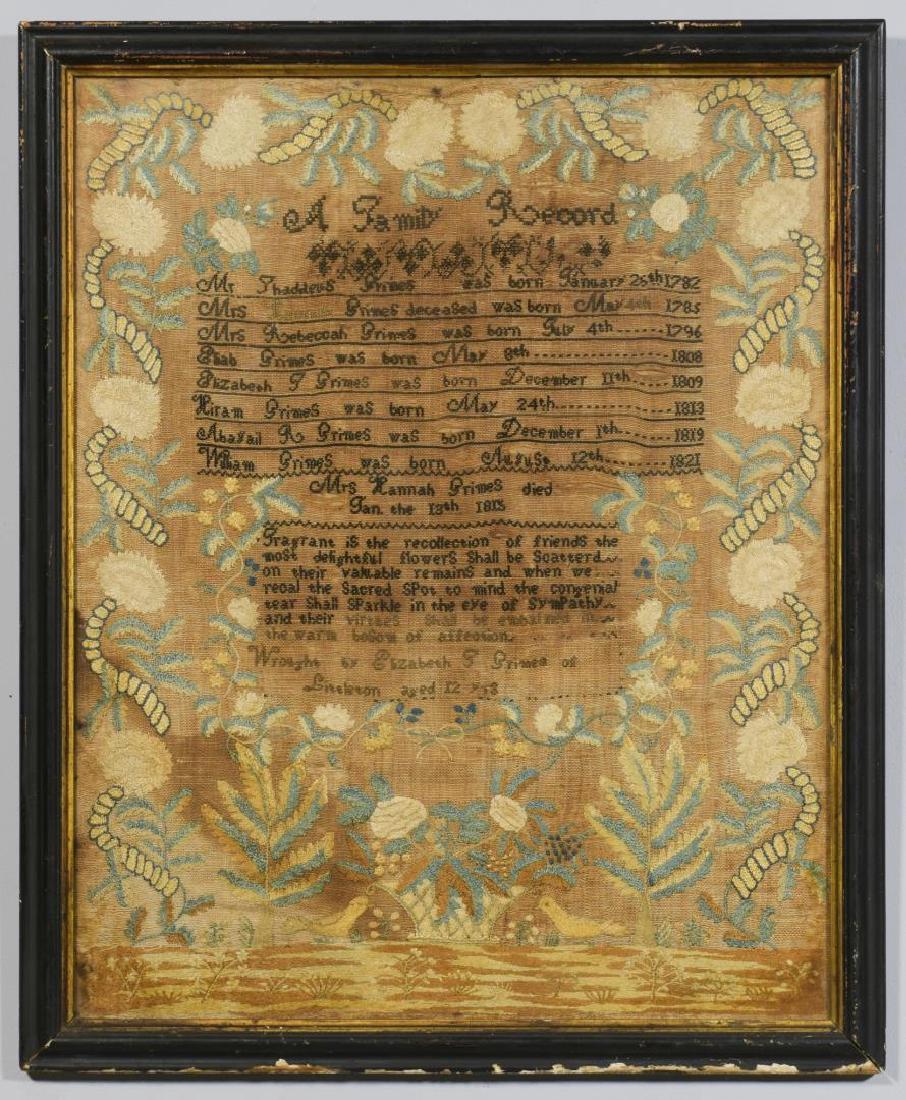 A Family Record
Mr Thaddeus Grimes was born January 25th 1782
Mrs Grimes deceased was born May 4th 1785
Mrs Rebeccah Grimes was born July 4th 1796
Phab Grimes was born May 8th 1808
Elizabeth T Grimes was born December 11th 1809
Hiram Grimes was born May 24th 1813
Abagail R Grimes was born December 1th 1819
William Grimes was born August 12th 1821
Mrs Hannah Grimes died
Jan. the 13th 1815
Fragrant is the recollection of friends the
most delightful flowers Shall be Scatterd
on their valuable remains and when we
recal the Sacred Spot to mind the congenial
tear Shall Sparkle in the eye of Sympathy
and their virtues Shall be embalmed in
the warm bosom of affection
Wrought by Elizabeth T Grimes of
Littleton aged 12 yrs